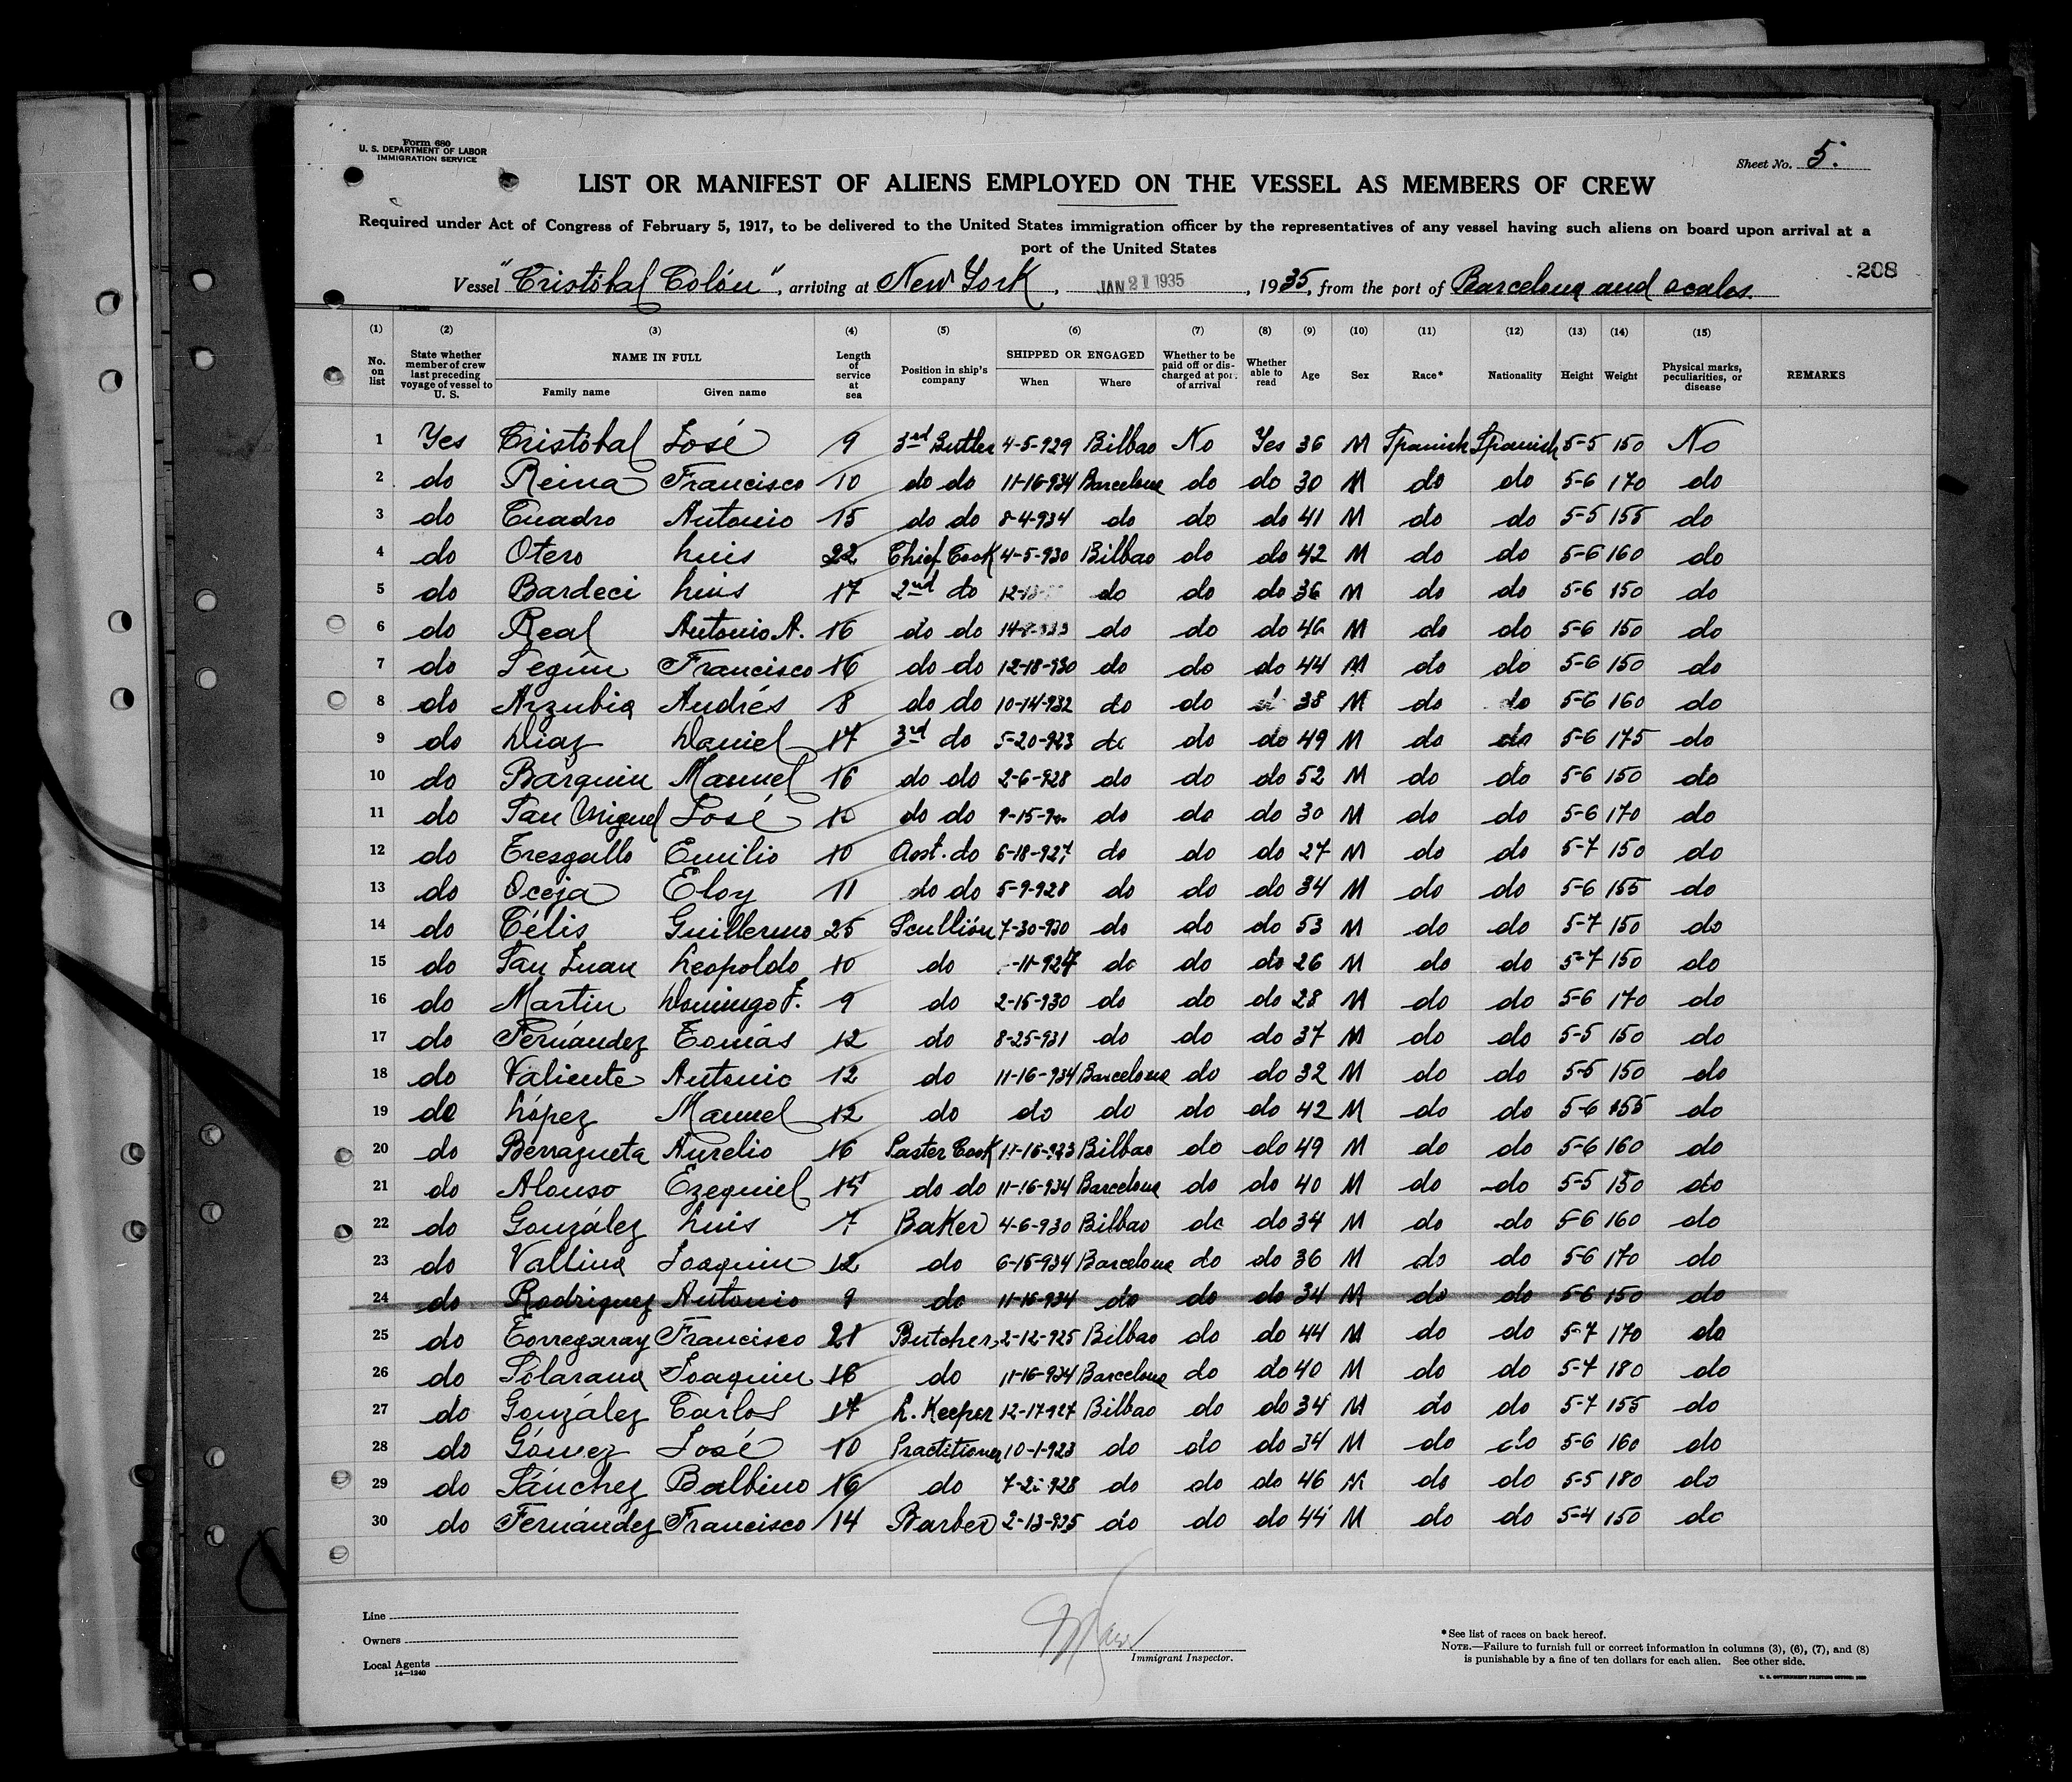 Form 680
U. S. DEPARTMENT OF LABOR
IMMIGRATION SERVICE
Sheet No. 5.
LIST OR MANIFEST OF ALIENS EMPLOYED ON THE VESSEL AS MEMBERS OF CREW
Required under Act of Congress of February 5, 1917, to be delivered to the United States immigration officer by the representatives of any vessel having such aliens on board upon arrival at a
port of the United States
208
Vessel "Cristóbal Colón", arriving at New York, JAN 21 1935, 1935, from the port of Barcelona and scales.
(1) (2) (3) (4) (5) (6) (7) (8) (9) (10) (11) (12) (13) (14) (15)
No. on list State whether member of crew last preceding voyage of vessel to U. S. NAME IN FULL Family name Given name Length of service at sea Position in ship's company SHIPPED OR ENGAGED When Where Whether to be paid off or discharged at port of arrival Whether able to read Age Sex Race* Nationality Height Weight Physical marks, peculiarities, or disease REMARKS
1 Yes Cristóbal José 9 3rd Butler 4-5-929 Bilbao No Yes 36 M Spanish Spanish 5-5 150 No
2 do Reina Francisco 10 do do 11-16-934 Barcelona do do 30 M do do 5-6 170 do
3 do Cuadro Antonio 15 do do 8-4-934 do do do 41 M do do 5-5 155 do
4 do Otero Luis 22 Chief Cook 4-5-930 Bilbao do do 42 M do do 5-6 160 do
5 do Bardeci Luis 17 2nd do do do do 36 M do do 5-6 150 do
6 do Real Antonio A. 16 do do do do do 46 M do do 5-6 150 do
7 do Seguin Francisco 16 do do 12-18-930 do do do 44 M do do 5-6 150 do
8 do Arzubia Andrés 8 do do 10-14-932 do do 38 M do do 5-6 160 do
9 do Diaz Daniel 17 3rd do 5-20-923 do do do 49 M do do 5-6 175 do
10 do Barquin Manuel 16 do do 2-6-928 do do do 52 M do do 5-6 150 do
11 do San Miguel José do do do do do 30 M do do 5-6 170 do
12 do Tresgallo Emilio 10 Asst. do 6-18-927 do do do 27 M do do 5-7 150 do
13 do Oceja Eloy 11 do do 5-9-928 do do do 34 M do do 5-6 155 do
14 do Célis Guillermo 25 Scullión 7-30-930 do do do 53 M do do 5-7 150 do
15 do San Juan Leopoldo 10 do -11-927 do do do 26 M do do 5-7 150 do
16 do Martin Domingo F. 9 do 2-15-930 do do do 28 M do do 5-6 170 do
17 do Fernández Tomás 12 do 8-25-931 do do do 37 M do do 5-5 150 do
18 do Valiente Antonio 12 do 11-16-934 Barcelona do do 32 M do do 5-5 150 do
19 do López Manuel 12 do do do do do 42 M do do 5-6 155 do
20 do Berrazueta Aurelio 16 Paster Cook 11-16-923 Bilbao do do 49 M do do 5-6 160 do
21 do Alonso Ezequiel do do 11-16-934 Barcelona do do 40 M do do 5-5 150 do
22 do González Luis 7 Baker 4-6-930 Bilbao do do 34 M do do 5-6 160 do
23 do Vallina Joaquin 12 do 6-15-934 Barcelona do do 36 M do do 5-6 170 do
24 do Rodriguez Antonio 9 do 11-16-934 do do do 34 M do do 5-6 150 do
25 do Torregaray Francisco 21 Butcher 2-12-925 Bilbao do do 44 M do do 5-7 170 do
26 do Solarana Joaquin 16 do 11-16-934 Barcelona do do 40 M do do 5-7 180 do
27 do González Carlos 17 L. Keeper 12-17-927 Bilbao do do 34 M do do 5-7 155 do
28 do Gómez José 10 Practitioner 10-1-923 do do do 34 M do do 5-6 160 do
29 do Sánchez Balbino 16 do do do do 46 M do do 5-5 180 do
30 do Fernández Francisco 14 Barber 2-13-925 do do do 44 M do do 5-4 150 do
Line
Owners
Local Agents
14—1240
Immigrant Inspector.
*See list of races on back hereof.
NOTE.—Failure to furnish full or correct information in columns (3), (6), (7), and (8)
is punishable by a fine of ten dollars for each alien. See other side.